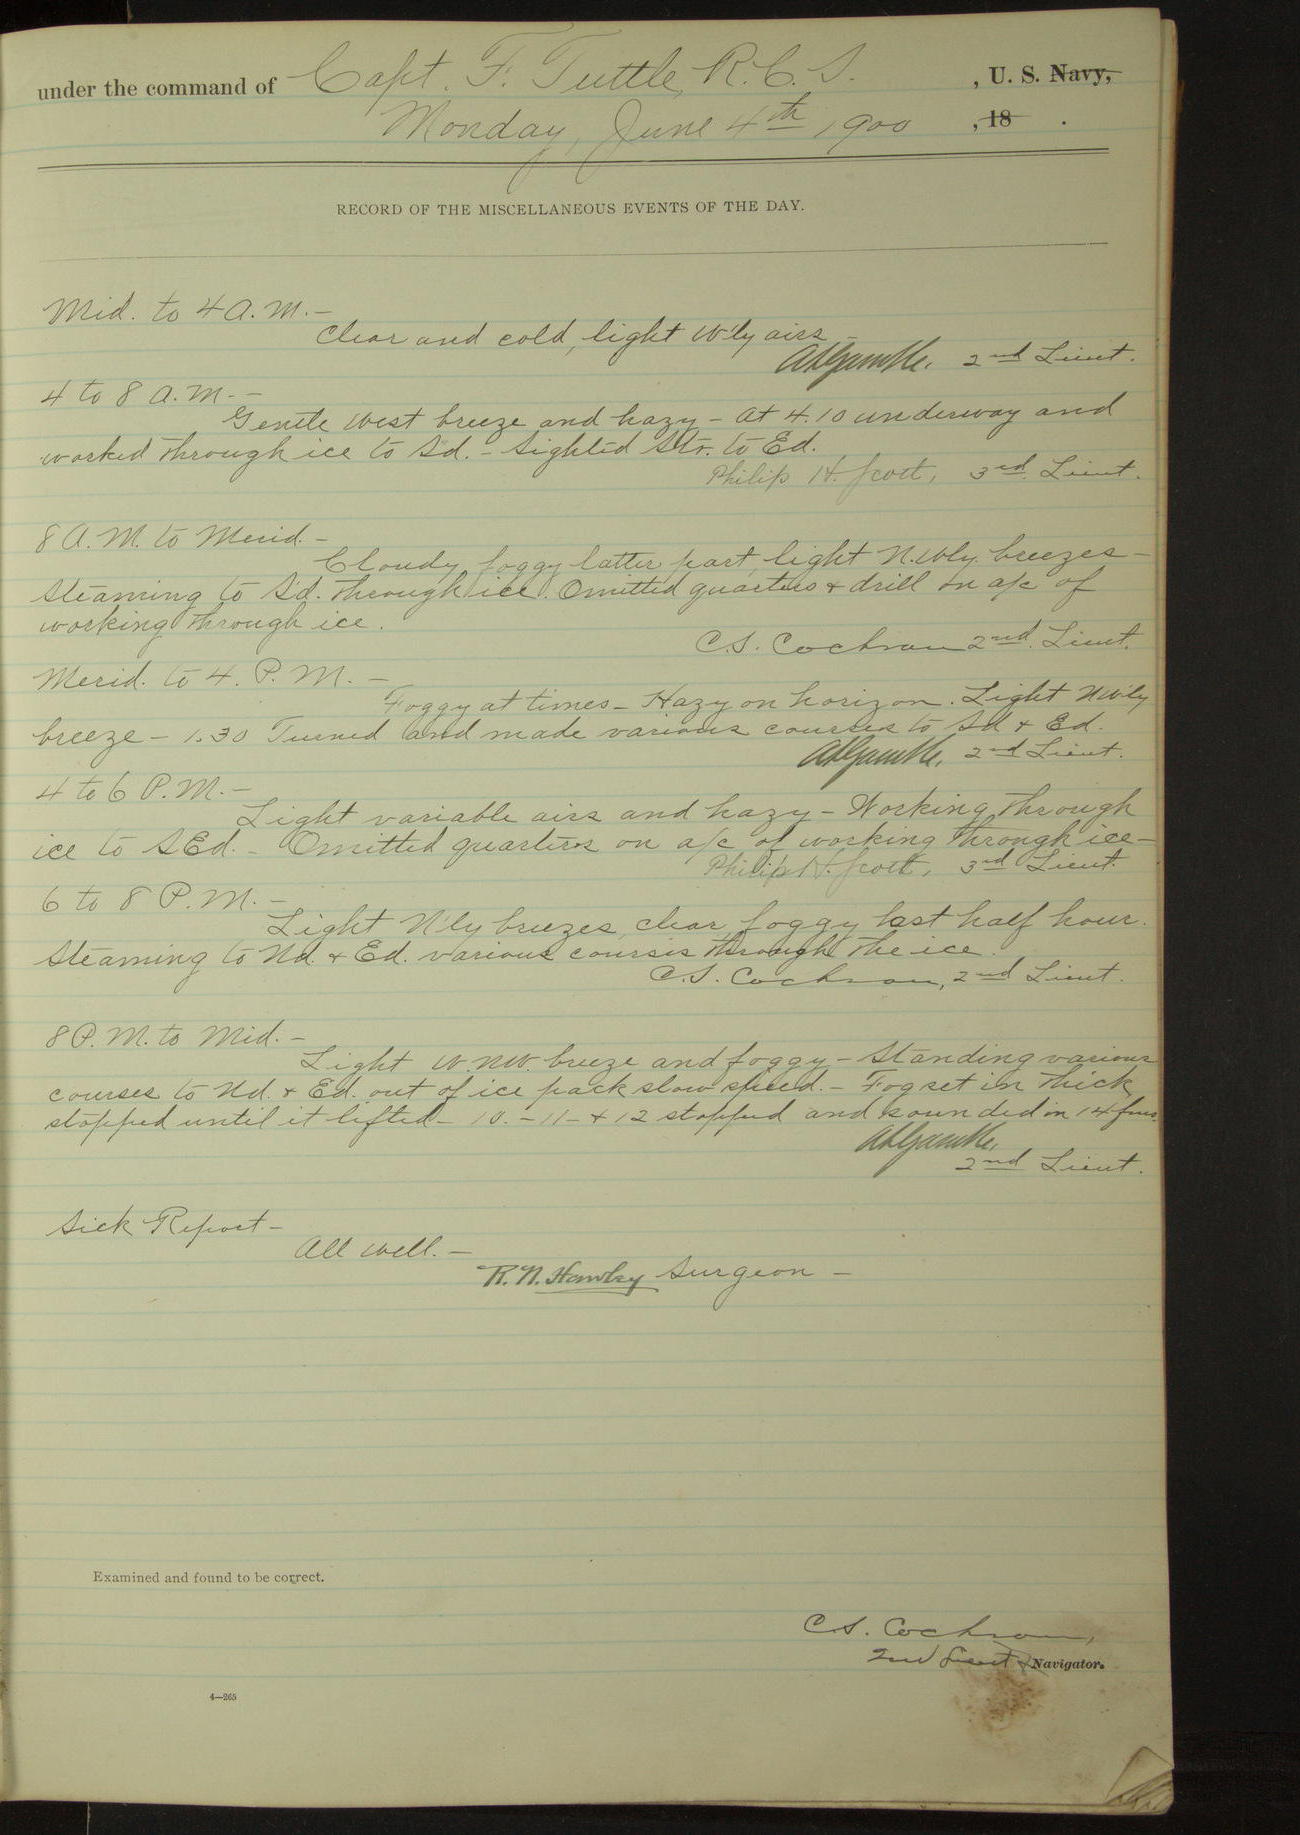 under the command of Capt. F. Tuttle, R.C.S. , U. S. Navy,
Monday, June 4th 1900 , 18 .
RECORD OF THE MISCELLANEOUS EVENTS OF THE DAY.
Mid. to 4 A.M.–
Clear and cold, light W'ly airs –
2nd Lieut.
4 to 8 A.M.–
Gentle West breeze and hazy – At 4.10 underway and
worked through ice to Sd. – Sighted Str. to Ed.
Philip H. Scott, 3rd Lieut.
8 A.M. to Merid.–
Cloudy, foggy latter part, light N.W'ly breezes –
Steaming to S'd. through ice. Omitted quarters & drill on a/c of
working through ice.
C.S. Cochran 2nd Lieut.
Merid. to 4. P.M.–
Foggy at times – Hazy on horizon. Light NW'ly
breeze – 1.30 Turned and made various courses to Sd & Ed.
2nd Lieut.
4 to 6 P.M.–
Light variable airs and hazy – Working through
ice to SEd. – Omitted quarters on a/c of working through ice –
Philip H. Scott, 3rd Lieut.
6 to 8 P.M.–
Light N'ly breezes, clear, foggy last half hour.
Steaming to Nd. & Ed. various courses through the ice.
C.S. Cochran, 2nd Lieut.
8 P.M. to Mid.–
Light W.NW. breeze and foggy – Standing various
courses to Nd. & Ed. out of ice pack slow speed. – Fog set in thick
stopped until it lifted – 10. – 11 – & 12 stopped and sounded in 14 fms.
2nd Lieut.
Sick Report –
All well. –
R.N. Hawley Surgeon –
Examined and found to be correct.
C.S. Cochran,
2nd Lieut & Navigator.
4—265